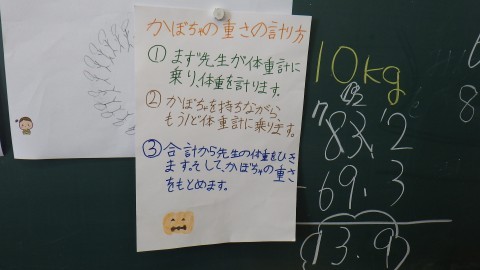 かぼちゃの重さの計り方
① まず先生が体重計に
乗り、体重を計ります。
② かぼちゃを持ちながら、
もう1ど体重計に乗ります。
③ 合計から先生の体重をひき
ます。そして、かぼちゃの重さ
をもとめます。
10kg
83.2
69.3
13.9
8